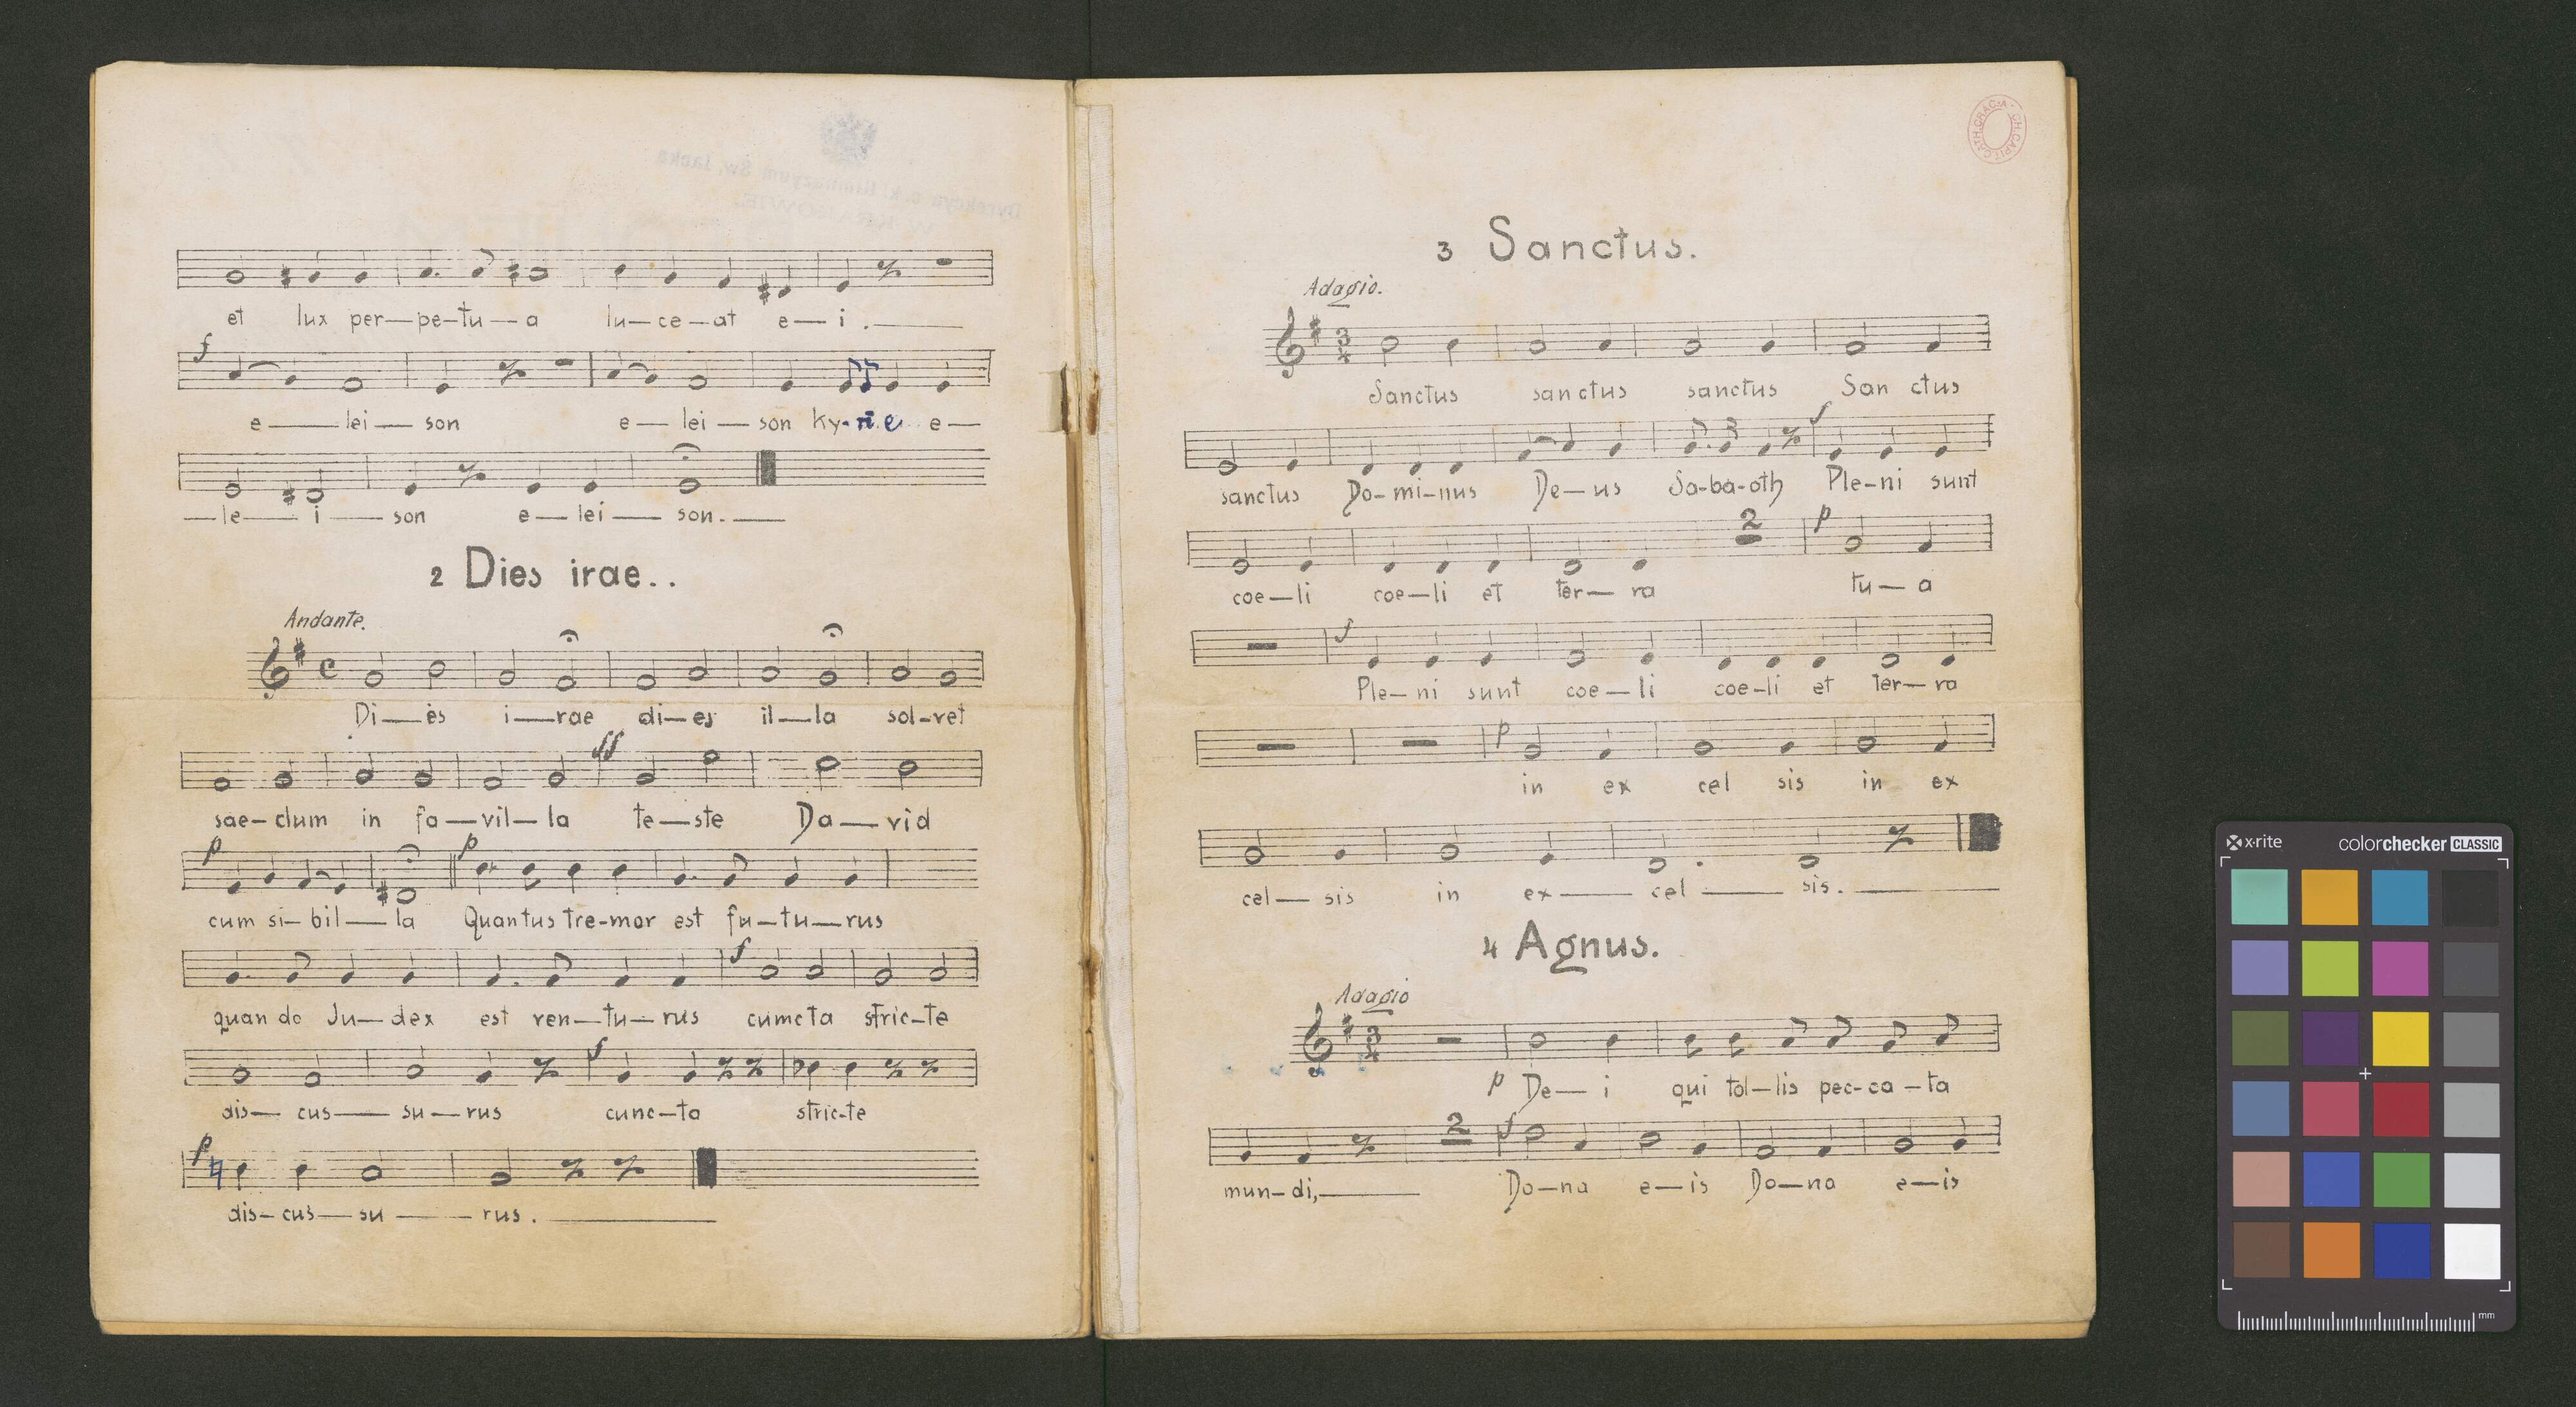 et lux per—pe—tu—a lu—ce—at e—i.
f
e—lei—son e—lei—son ky-rie e—
—le—i—son e—lei—son.
2 Dies irae..
Andante.
Di—es i—rae di—es il—la sol—vet
ff
sae—clum in fa—vil—la te—ste Da—vid
p p
cum si—bil—la Quantus tre—mor est fu—tu—rus
f
quan do Ju—dex est ven—tu—rus cumcta stric—te
f
dis—cus—su—rus cunc—ta stric-te
p
dis—cus—su—rus.
CATH.CRAC.A
CH.CAPIT.
3 Sanctus.
Adagio.
3
4
Sanctus sanctus sanctus San ctus
f
sanctus Do—mi—nus De—us Sa-ba-oth Ple—ni sunt
2 p
coe—li coe—li et ter—ra tu—a
f
Ple—ni sunt coe—li coe—li et ter—ra
p
in ex cel sis in ex
cel—sis in ex—cel—sis.
4 Agnus.
Adagio
3
4
p De—i qui tol—lis pec-ca—ta
2 f
mun—di, Do—na e—is Do—na e—is
x·rite colorchecker CLASSIC
mm